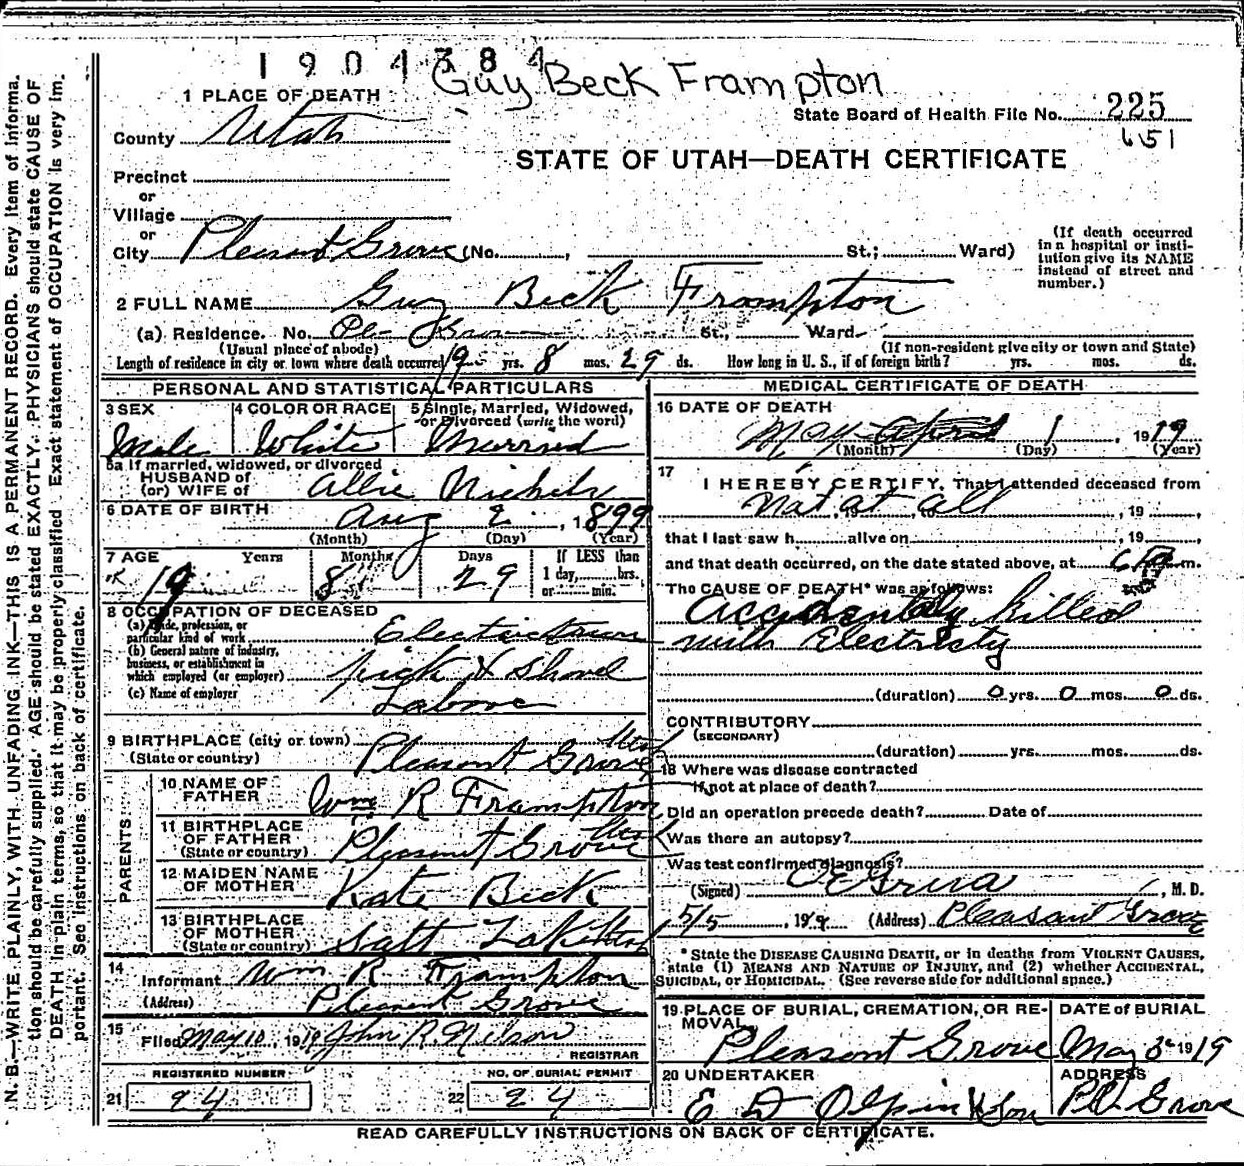 1904384
Guy Beck Frampton
1 PLACE OF DEATH
State Board of Health File No. 225
651
County Utah
STATE OF UTAH—DEATH CERTIFICATE
Precinct
or
Village
or
City Pleasant Grove (No. , St.; Ward)
(If death occurred in a hospital or insti-
tution give its NAME
instead of street and
number.)
2 FULL NAME Guy Beck Frampton
(a) Residence. No. Pl Grove St., Ward
(Usual place of abode) (If non-resident give city or town and State)
Length of residence in city or town where death occurred 19 yrs. 8 mos. 29 ds. How long in U. S., if of foreign birth? yrs. mos. ds.
PERSONAL AND STATISTICAL PARTICULARS
3 SEX Male
4 COLOR OR RACE White
5 Single, Married, Widowed,
or Divorced (write the word)
Married
5a If married, widowed, or divorced
HUSBAND of
(or) WIFE of Allie Nichols
6 DATE OF BIRTH Aug 2, 1899
(Month) (Day) (Year)
7 AGE Years Months Days If LESS than
1 day, hrs.
or min.
19 8 29
8 OCCUPATION OF DECEASED
(a) Trade, profession, or
particular kind of work
(b) General nature of industry,
business, or establishment in
which employed (or employer) pick & shovel
(c) Name of employer Labor
9 BIRTHPLACE (city or town)
(State or country) Pleasant Grove Utah
PARENTS
10 NAME OF
FATHER Wm R Frampton
11 BIRTHPLACE
OF FATHER
(State or country) Pleasant Grove Utah
12 MAIDEN NAME
OF MOTHER Kate Beck
13 BIRTHPLACE
OF MOTHER
(State or country) Salt Lake Utah
14 Informant Wm R Frampton
(Address) Pleasant Grove
15 Filed May 10, 1919 John R. Nelson
REGISTRAR
REGISTERED NUMBER
21 24
NO. OF BURIAL PERMIT
22 24
MEDICAL CERTIFICATE OF DEATH
16 DATE OF DEATH
May April 1, 1919
(Month) (Day) (Year)
17 I HEREBY CERTIFY, That I attended deceased from
Not at all, 19 ,
that I last saw h alive on , 19 ,
and that death occurred, on the date stated above, at m.
The CAUSE OF DEATH* was as follows:
Accidentally killed
with Electricity
(duration) 0 yrs. 0 mos. 0 ds.
CONTRIBUTORY
(SECONDARY)
(duration) yrs. mos. ds.
18 Where was disease contracted
If not at place of death?
Did an operation precede death? Date of
Was there an autopsy?
Was test confirmed diagnosis?
(Signed) , M. D.
5/5, 1919 (Address) Pleasant Grove
* State the DISEASE CAUSING DEATH, or in deaths from VIOLENT CAUSES,
state (1) MEANS AND NATURE OF INJURY, and (2) whether ACCIDENTAL,
SUICIDAL, or HOMICIDAL. (See reverse side for additional space.)
19 PLACE OF BURIAL, CREMATION, OR RE-
MOVAL
Pleasant Grove
DATE OF BURIAL
May 3 1919
20 UNDERTAKER
E D Olpin & Son
ADDRESS
Pl. Grove
READ CAREFULLY INSTRUCTIONS ON BACK OF CERTIFICATE.
N. B.—WRITE PLAINLY, WITH UNFADING INK—THIS IS A PERMANENT RECORD. Every item of informa-
tion should be carefully supplied. AGE should be stated EXACTLY. PHYSICIANS should state CAUSE OF
DEATH in plain terms, so that it may be properly classified. Exact statement of OCCUPATION is very im-
portant. See instructions on back of certificate.